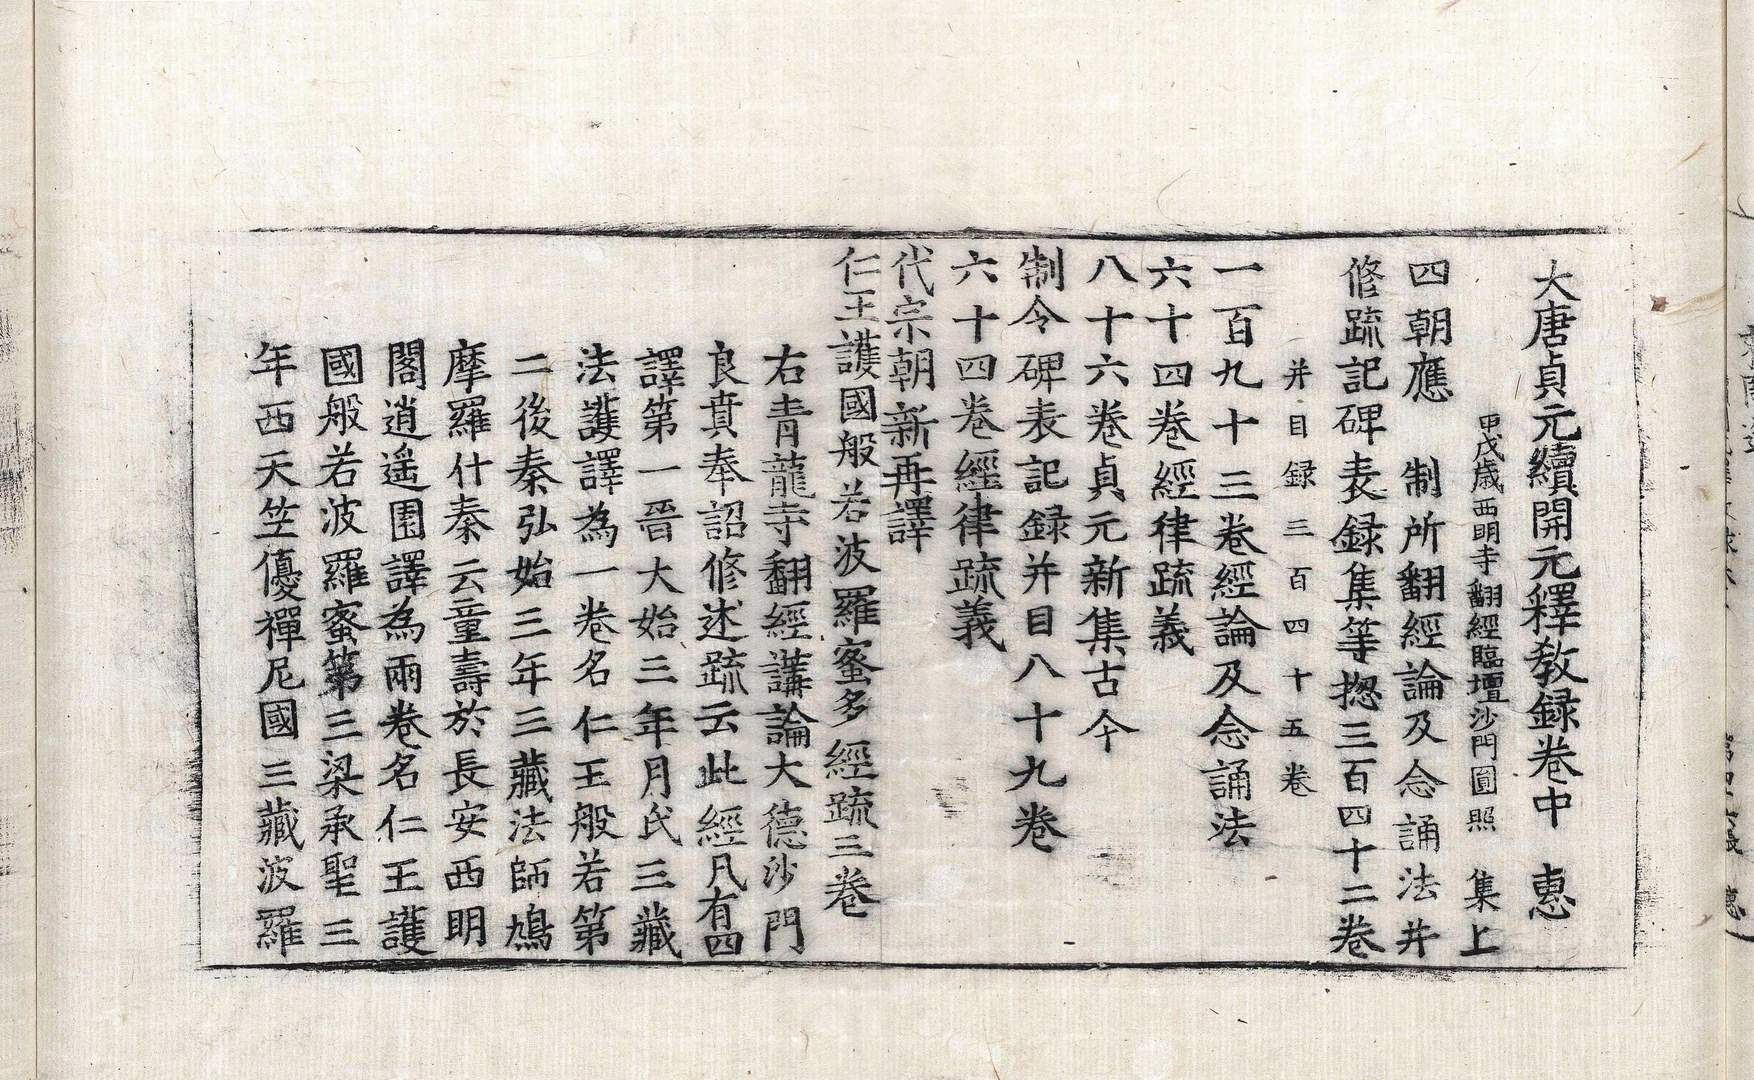 大唐貞元續開元釋教録卷中　惠
甲戌歲西明寺翻經臨壇沙門圓照　集上
四朝應　制所翻經論及念誦法并
修疏記碑表録集等揔三百四十二卷
并目録三百四十五卷
一百九十三卷經論及念誦法
六十四卷經律疏義
八十六卷貞元新集古今
制令碑表記録并目八十九卷
六十四卷經律疏義
代宗朝新再譯
仁王護國般若波羅蜜多經疏三卷
右青龍寺翻經講論大德沙門
良賁奉詔修述疏云此經凡有四
譯第一晉大始三年月氏三藏
法護譯為一卷名仁王般若第
二後秦弘始三年三藏法師鳩
摩羅什秦云童壽於長安西明
閣逍遥園譯為兩卷名仁王護
國般若波羅蜜第三梁承聖三
年西天竺優禪尼國三藏波羅